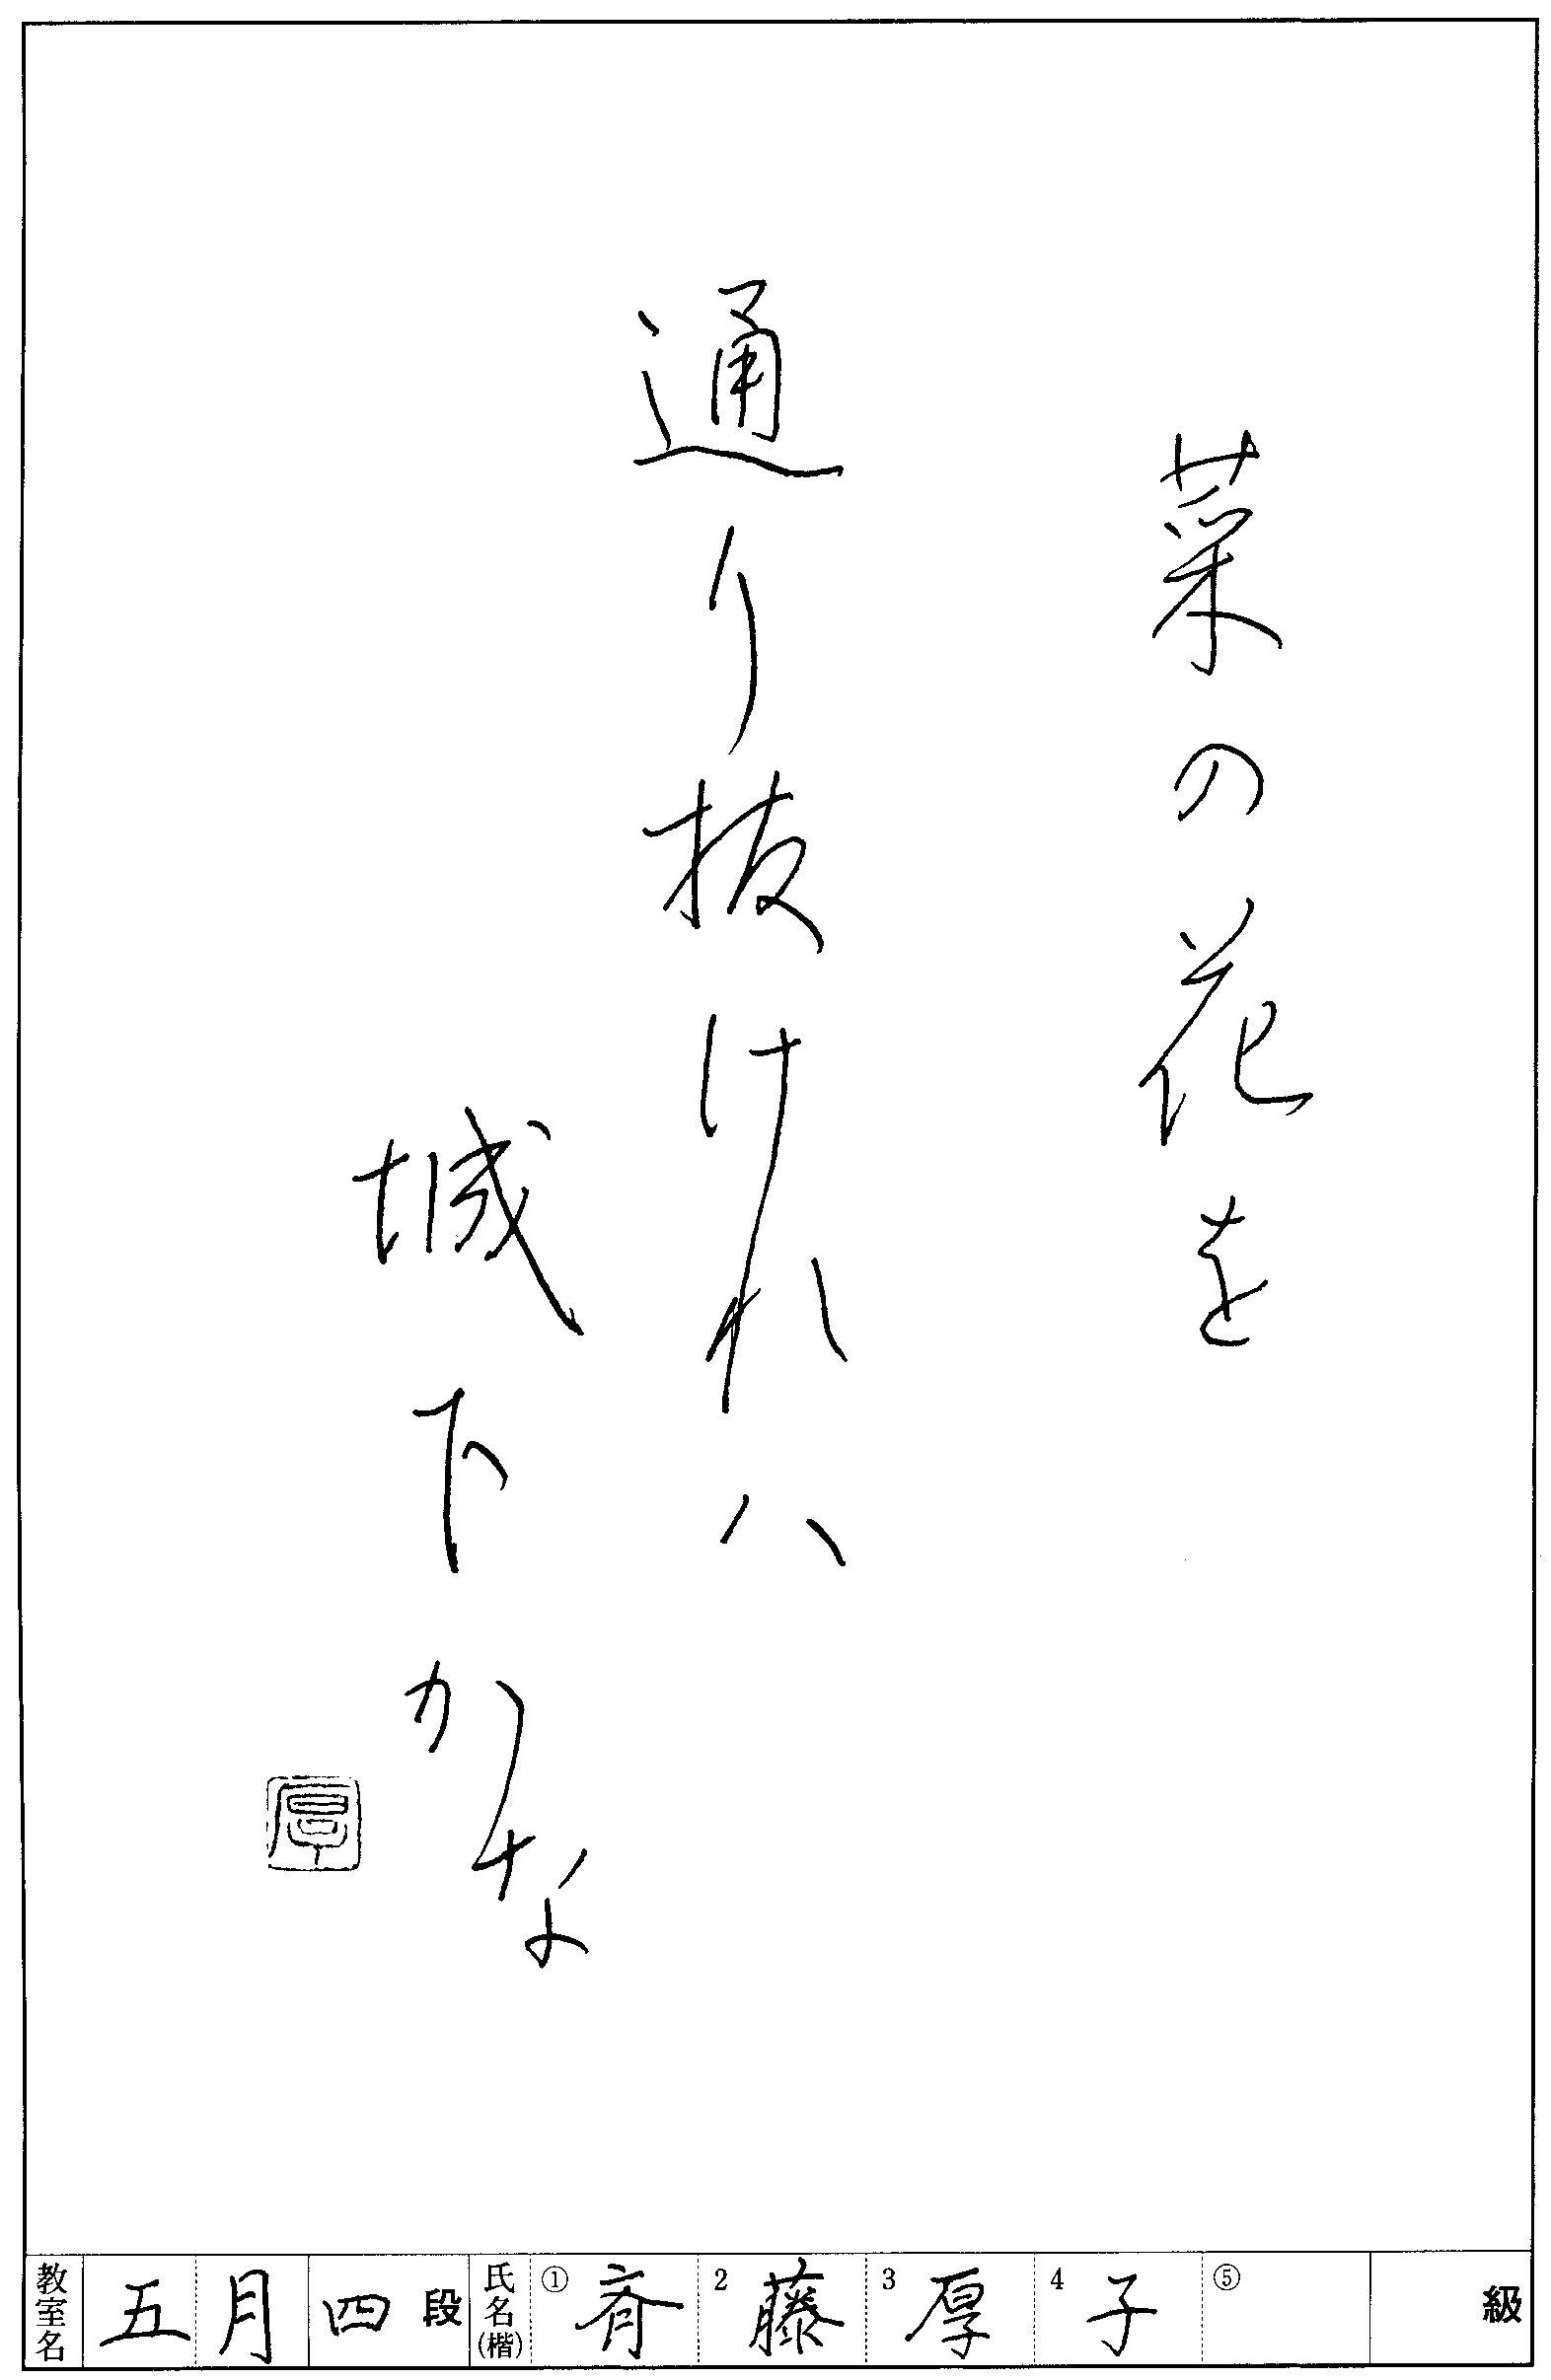 菜の花を
通り抜けれハ
城下かな
厚
教室名 五月 四段 氏名(楷) ① 斉 2 藤 3 厚 4 子 ⑤ 級